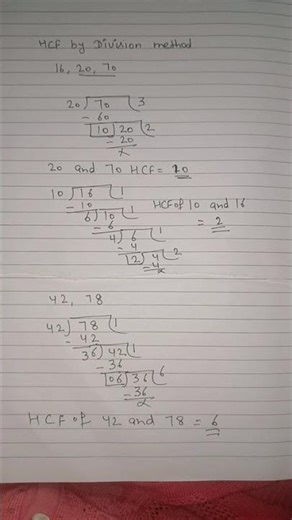 HCF by Division method
16, 20, 70
20) 70 (3
- 60
10) 20 (2
- 20
x
20 and 70 HCF = 10
10) 16 (1
- 10
6) 10 (1
- 6
4) 6 (1
- 4
2) 4 (2
- 4
x
HCF of 10 and 16
= 2
42, 78
42) 78 (1
- 42
36) 42 (1
- 36
06) 36 (6
- 36
x
HCF of 42 and 78 = 6